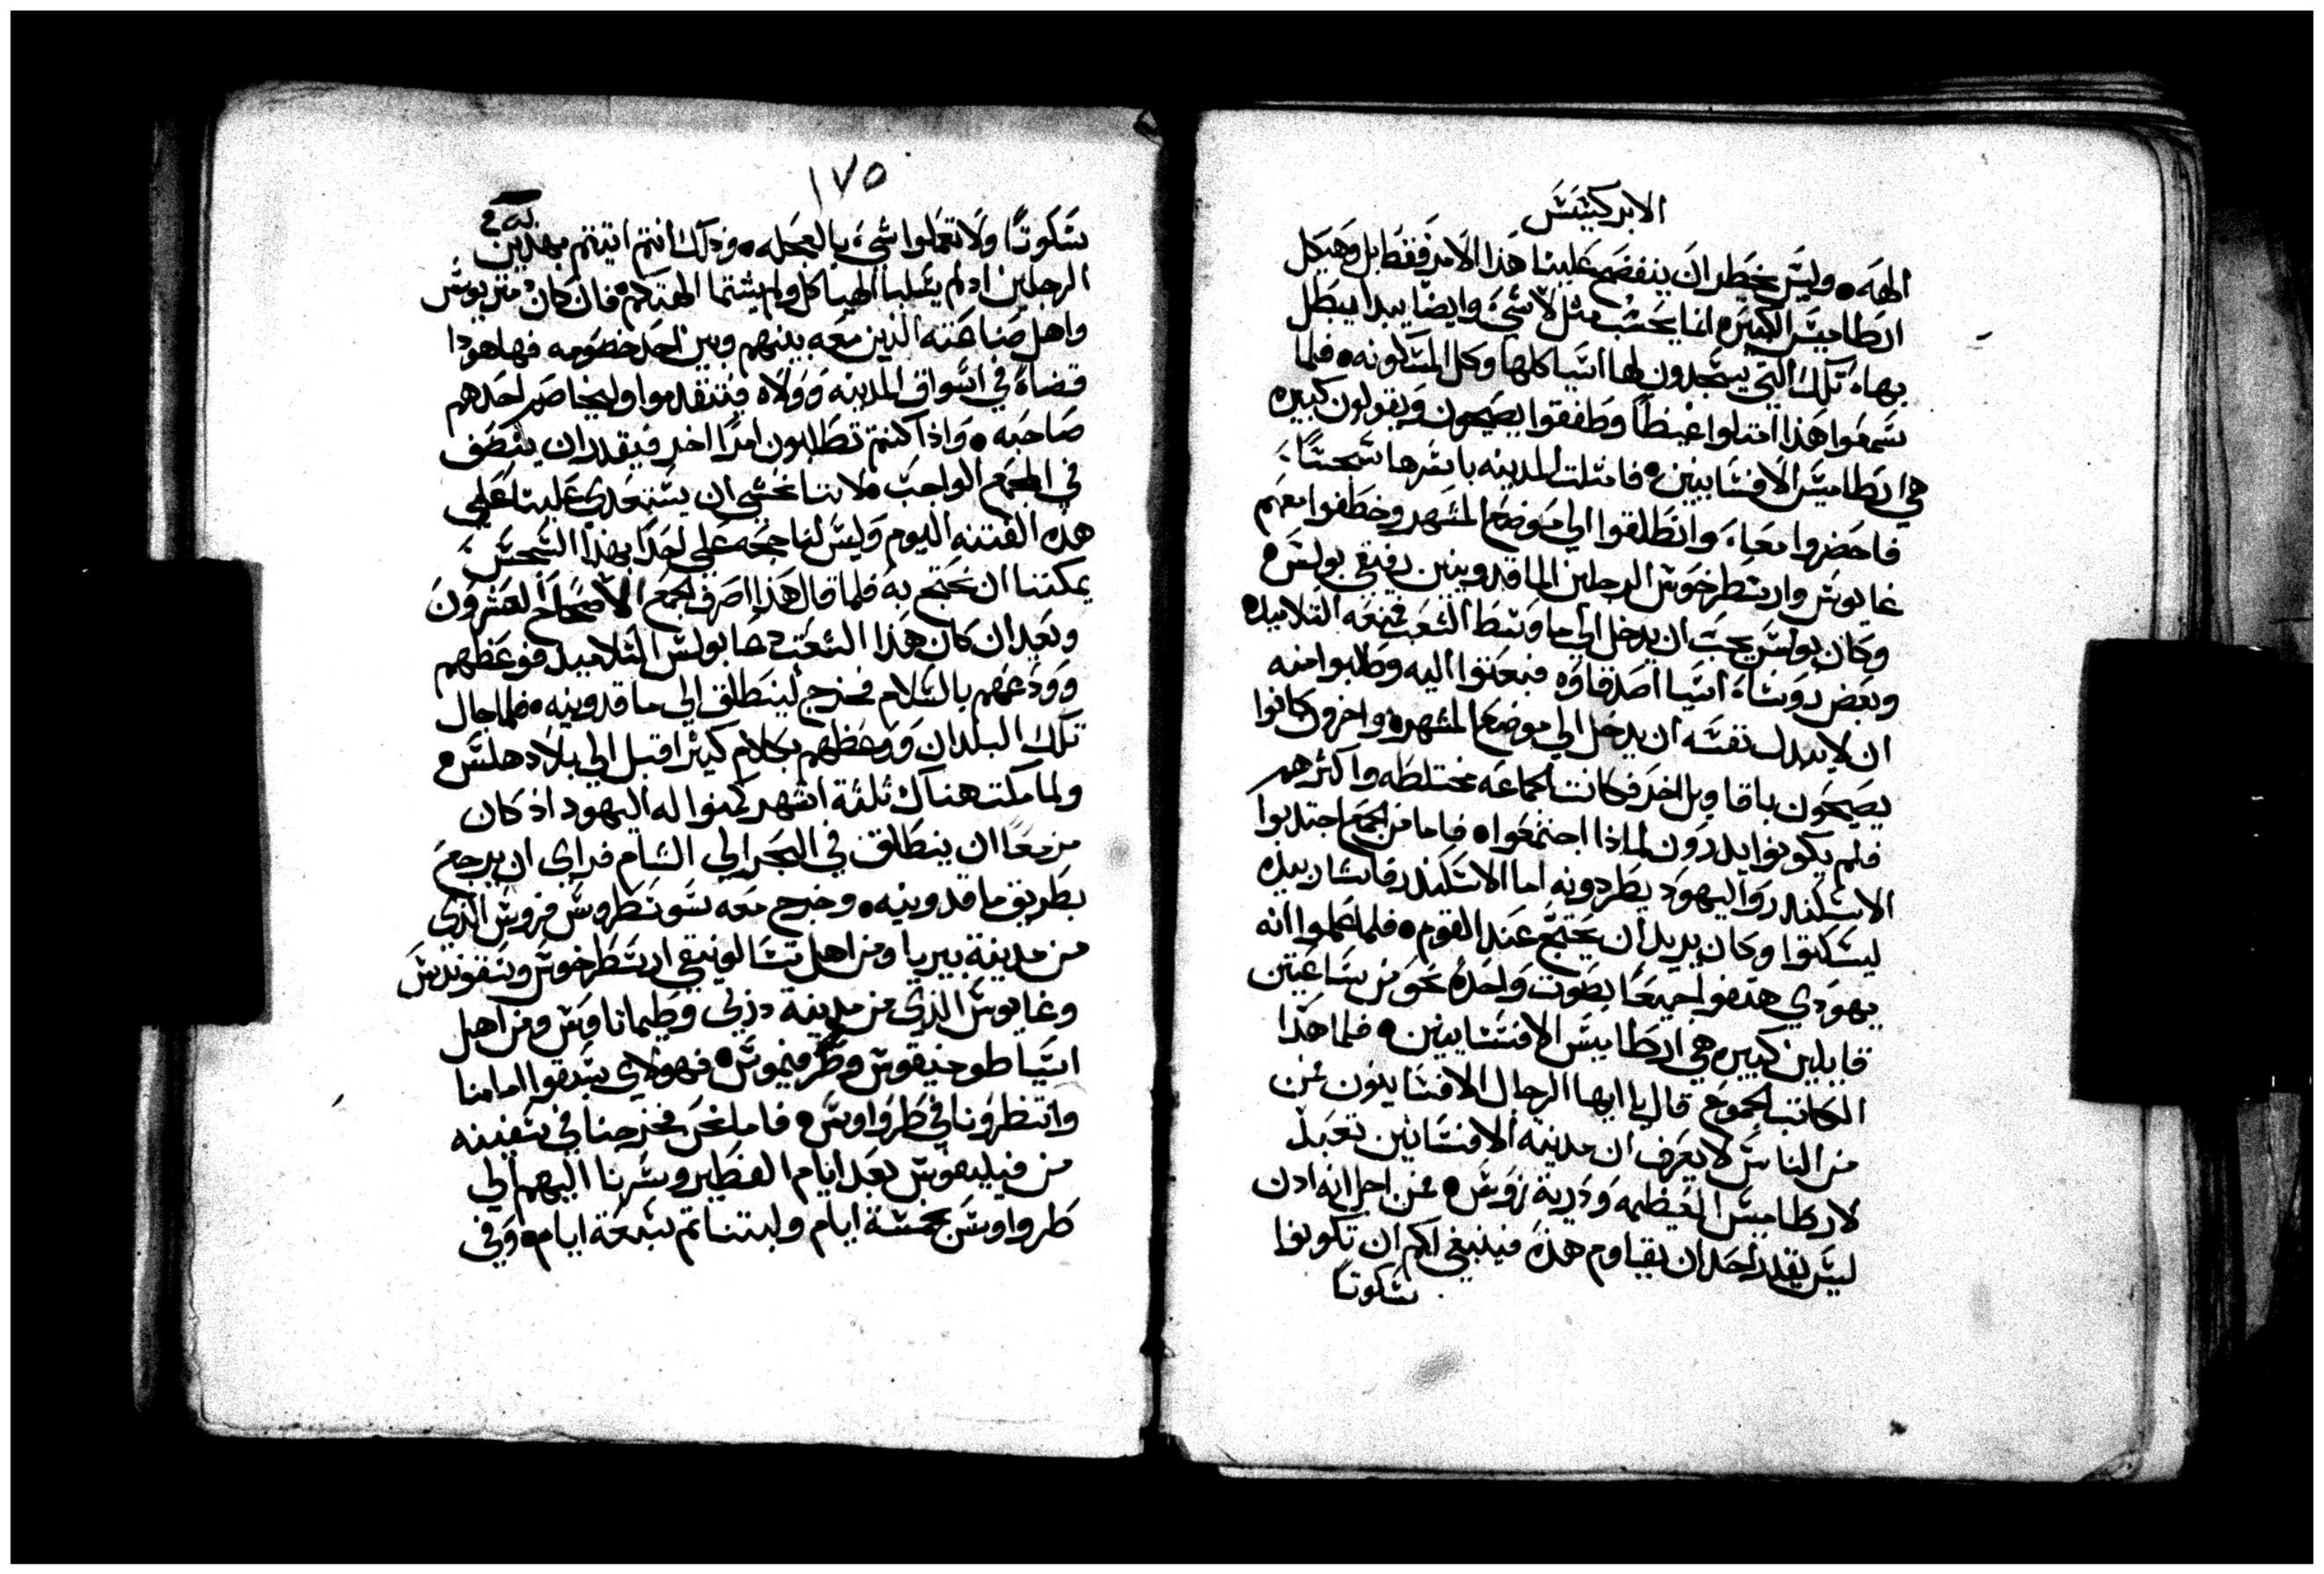 الابركسيس
الهه • وليس يخطر ان ينفضح علينا هذا الامر فقط بل وهيكل
ارطاميس الكبيره انما يحسب مثل لا شيء وايضا يبدا يبطل
بهاء تلك التي يسجدون لها اسيا كلها وكل المسكونه • فلما
سمعوا هذا امتلوا غيظاً وطفقوا يصيحون ويقولون كبيره
هي ارطاميس الافسسانيين • فامتلت المدينه باسرها سجساً
فاحضروا معاً وانطلقوا الي موضع المشهد وخطفوا معهم
غايوس وارسطرخوس الرجلين الماقدونيين رفيقي بولس •
وكان بولس يحب ان يدخل الي ما وسط الشعب فمنعه التلاميده
وبعض روساء اسيا اصدقاوه فبعتوا اليه وطلبوا منه
ان لا يبدل نفسه ان يدخل الي موضع المشهد • واخرون كانوا
يصيحون باقاويل اخر فكانت الجماعه مختلطه واكثرهم
فلم يكونوا يدرون لماذا اجتمعوا • فاما من الجمع اجتدبوا
الاسكندروا اليهود يطردونه اما الاسكندر فاشار بيده
ليسكتوا وكان يريد ان يحتج عند القوم • فلما علموا انه
يهودي هتفوا جميعا بصوت واحده نحو من ساعتين
قايلين كبيره هي ارطاميس الافسسانيين • فلما هدا
الكاتب الجموع قال يا ايها الرجال الافسسانيون من
من الناس لا يعرف ان مدينه الافسسانيين تعبد
لارطاميس العظيمه وذرية زوس • فمن اجل انه ادن
ليس يقدر احد ان يقاوم هذه فينبغي لكم ان تكونوا
سكوتا
١٧٥
سكوتاً ولا تعملوا شيء بالعجله • وذلك انتم اتيتم بهدين
الرجلين اد لم يسلبا الهياكل ولم يشتما الهتكم • فان كان ديمتريوس
واهل صناعته الدين معه بينهم وبين احد خصومه فها هودا
قضاه في اسواق المدينه وولاه فيتقدموا وليخاصم احدهم
صاحبه • واذا كنتم تطلبون امرًا اخر فيقدر ان ينصف
في المجمع الواجب • لاننا نخشي ان يستعدي علينا علي
هذه الفتنه اليوم وليس لنا حجه علي احد بهذا السجس
يمكننا ان نحتج به فلما قال هذا اصرف الجمع الاصحاح العشرون
وبعد ان كان هذا الشغب دعا بولس التلاميد فوعظهم
وودعهم بالسلام فخرج لينطلق الي ماقدونيه • فلما جال
تلك البلدان ووعظهم بكلام كثير اقبل الي بلاد هلس •
ولما مكت هناك ثلثة اشهر كمنوا له اليهود اذ كان
مزمعًا ان ينطلق في البحر الي الشام فراي ان يرجع
بطريق ماقدونيه • وخرج معه سوسطروس فروس الذي
من مدينة بيريا ومن اهل تسالونيقي ارسطرخوس وسقوندس
وغايوس الذي من مدينة دربي وطيماتاوس ومن اهل
اسيا طوخيقوس وطرفيموس • فهولاي سبقوا امامنا
وانتظرونا في طرواوس • فاما نحن فخرجنا في سفينه
من فيليبوس بعد ايام الفطير وسرنا اليهم الي
طرواوس بخمسة ايام ولبتنا تم سبعة ايام • وفي